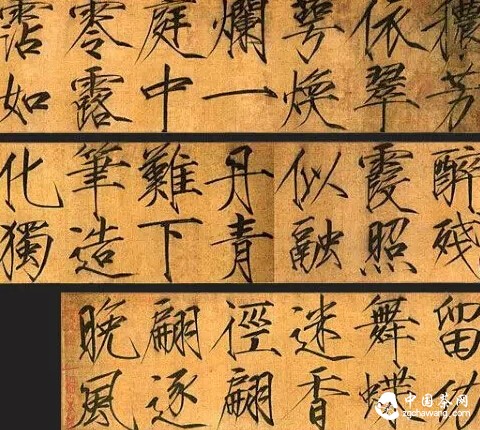 穠芳
依翠
萼煥
爛一
庭中
零露
霑如
醉殘
霞照
似融
丹青
難下
筆造
化獨
留功
舞蝶
迷香
徑翩
翩逐
晚風
中国茶网
zgchawang.com